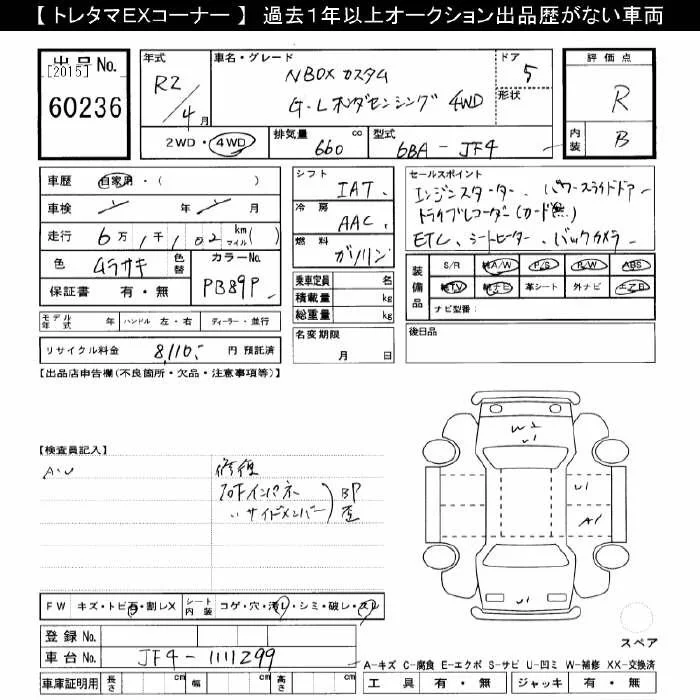 【 トレタマEXコーナー 】 過去1年以上オークション出品歴がない車両
出品No.
[2015]
60236
年式
R2/4月
車名・グレード
NBOX カスタム
G・Lホンダセンシング 4WD
ドア
5
形状
2WD・4WD
排気量
660 cc
型式
6BA-JF4
評価点
R
内装
B
車歴 自家用・( )
車検 年 月
走行 6万1千102 km マイル( )
色 ムラサキ 色替
カラーNo.
PB89P
保証書 有・無
モデル年式 年 ハンドル 左・右 ディーラー・並行
リサイクル料金 8,110- 円 預託済
シフト
IAT
冷房
AAC
燃料
ガソリン
乗車定員 名
積載量 kg
総重量 kg
名変期限
月 日
セールスポイント
エンジンスターター、パワースライドドア
ドライブレコーダー(カード無)
ETC、シートヒーター、バックカメラ
装備品
S/R 純A/W P/S P/W ABS
純TV 純ナビ 革シート 外ナビ エアB
ナビ型番:
後日品
【出品店申告欄(不良箇所・欠品・注意事項等)】
【検査員記入】
A・U
修復
インパネ
サイドメンバー
BP
歪
W2
U1
U1
A1
U1
FW キズ・トビ石・割レX
シート内装 コゲ・穴・汚レ・シミ・破レ・スレ
登録No.
車台No. JF4-1111299
車庫証明用 長さ cm 幅 cm 高さ cm
スペア
A-キズ C-腐食 E-エクボ S-サビ U-凹ミ W-補修 XX-交換済
工具 有・無 ジャッキ 有・無